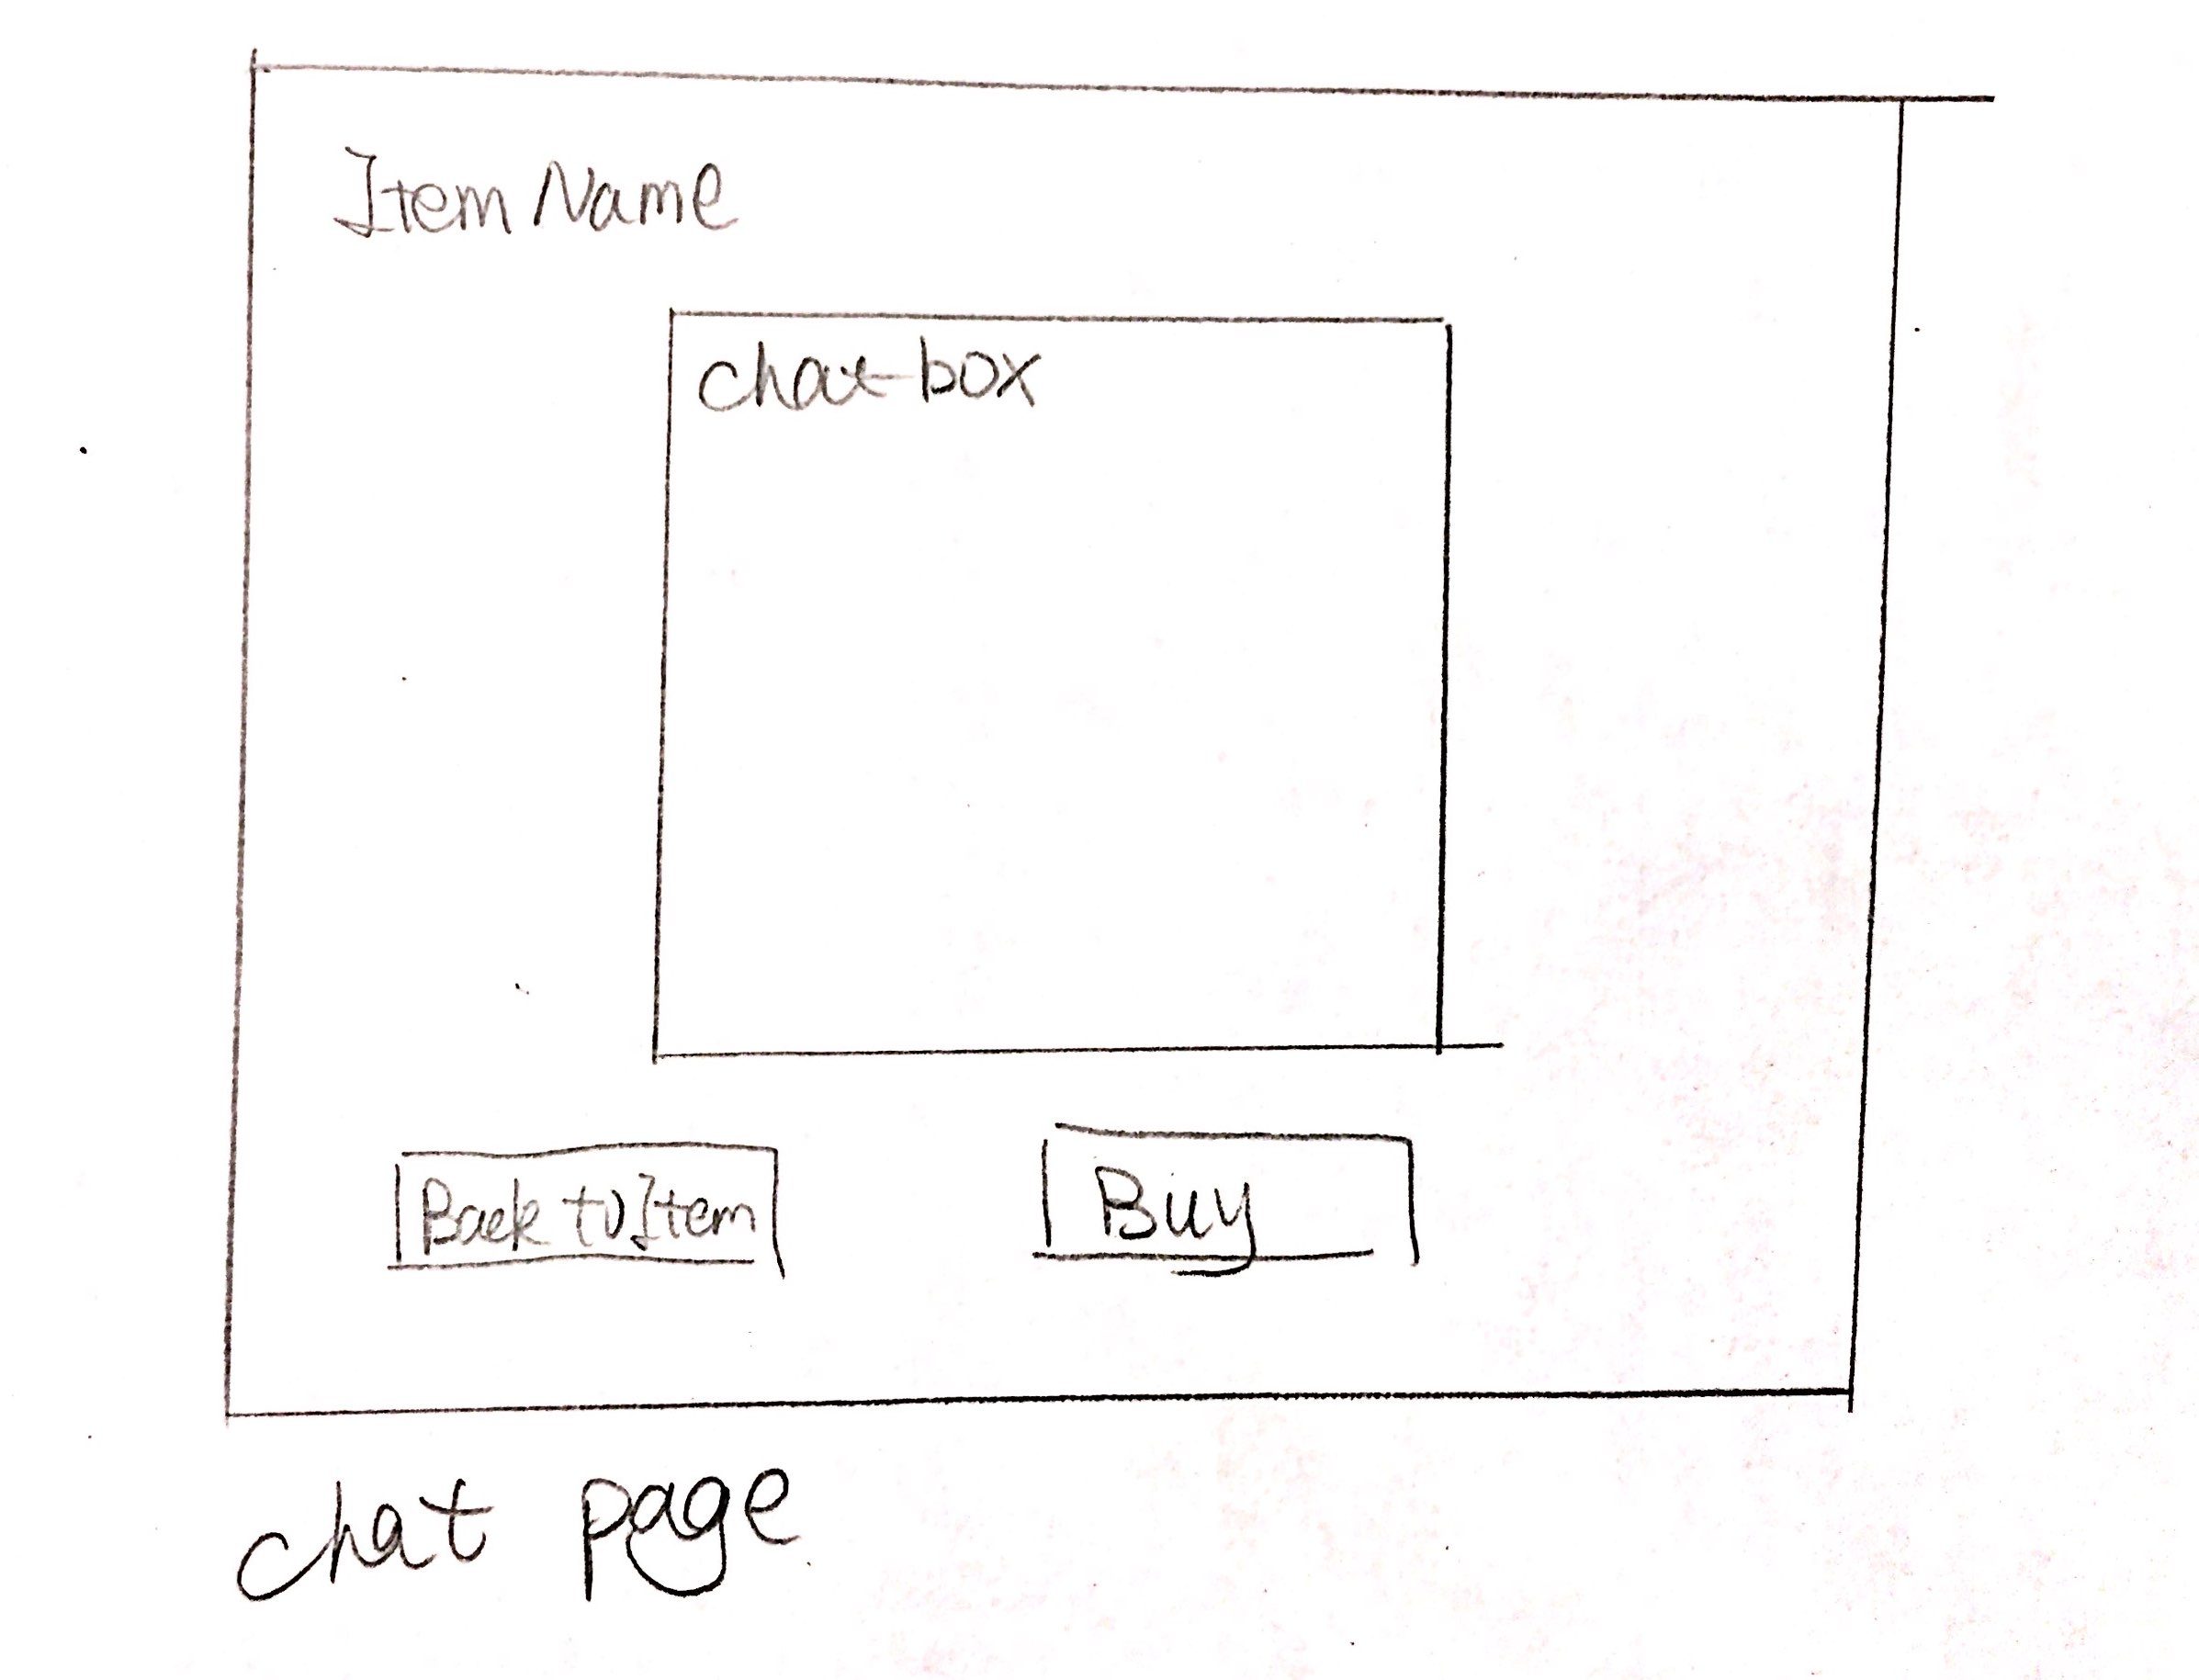 Item Name
chat box
Back to Item
Buy
chat page